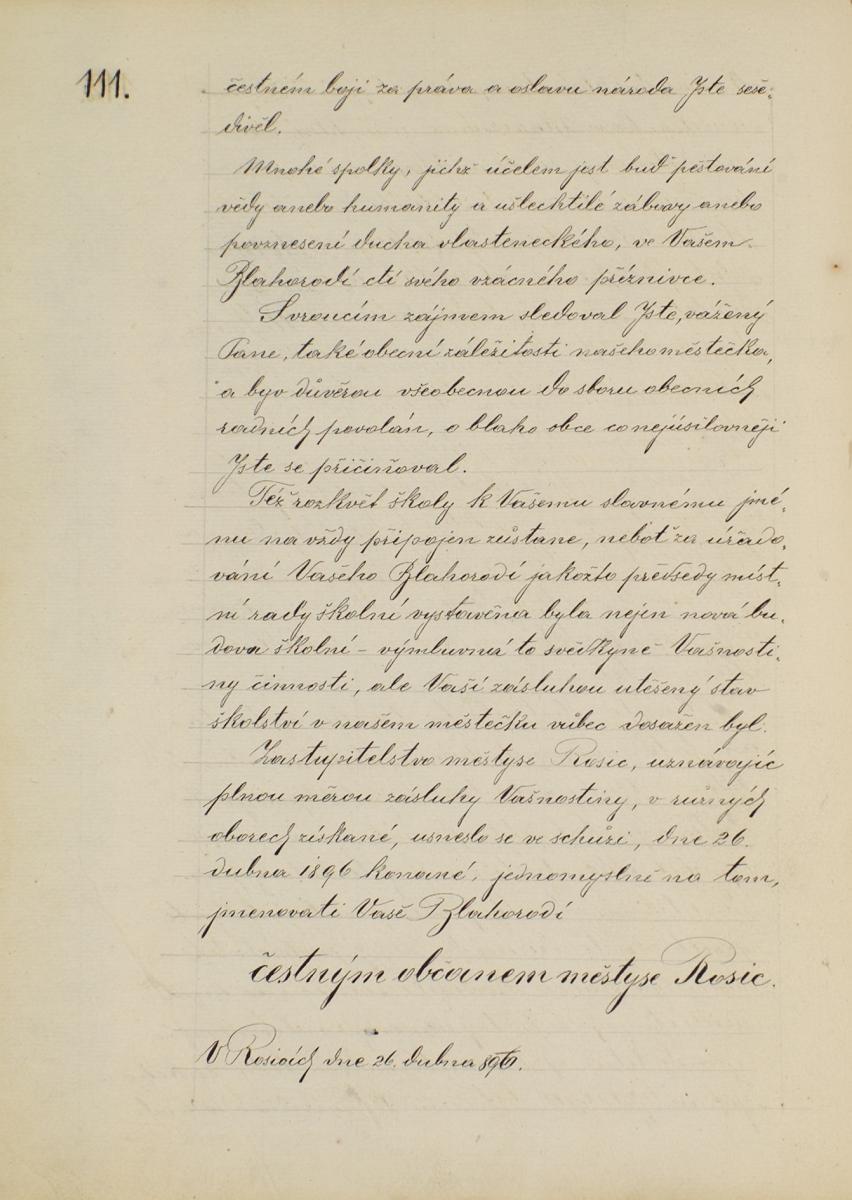 111.
čestném boji za práva a oslavu národa Jste seše-
divěl.
Mnohé spolky, jichž účelem jest buď pěstování
vědy anebo humanity a ušlechtilé zábavy anebo
povznesení ducha vlasteneckého, ve Vašem
Blahorodí ctí svého vzácného příznivce.
S vroucím zájmem sledoval Jste, vážený
Pane, také obecní záležitosti našeho městečka,
a byv důvěrou všeobecnou do sboru obecních
radních povolán, o blaho obce co nejúsilovněji
Jste se přičiňoval.
Též rozkvět školy k Vašemu slavnému jmé-
nu na vždy připojen zůstane, neboť za úřado-
vání Vašeho Blahorodí jakožto předsedy míst-
ní rady školní vystavěna byla nejen nová bu-
dova školní - výmluvná to svědkyně Vašnosti-
ny činnosti, ale Vaší zásluhou utěšený stav
školství v našem městečku vůbec dosažen byl.
Zastupitelstvo městyse Rosic, uznávajíc
plnou měrou zásluhy Vašnostiny, v různých
oborech získané, usneslo se ve schůzi, dne 26.
dubna 1896 konané, jednomyslně na tom,
jmenovati Vaše Blahorodí
čestným občanem městyse Rosic.
V Rosicích dne 26. dubna 896.